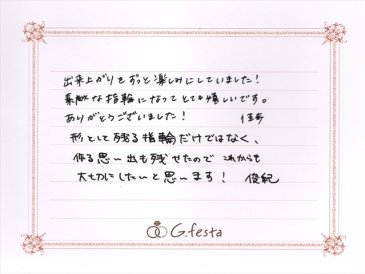 出来上がりをずっと楽しみにしていました!
素敵な指輪になってとても嬉しいです。
ありがとうございました! 佳歩
形として残る指輪だけではなく、
作る思い出も残せたので これからも
大切にしたいと思います! 俊紀
G.festa